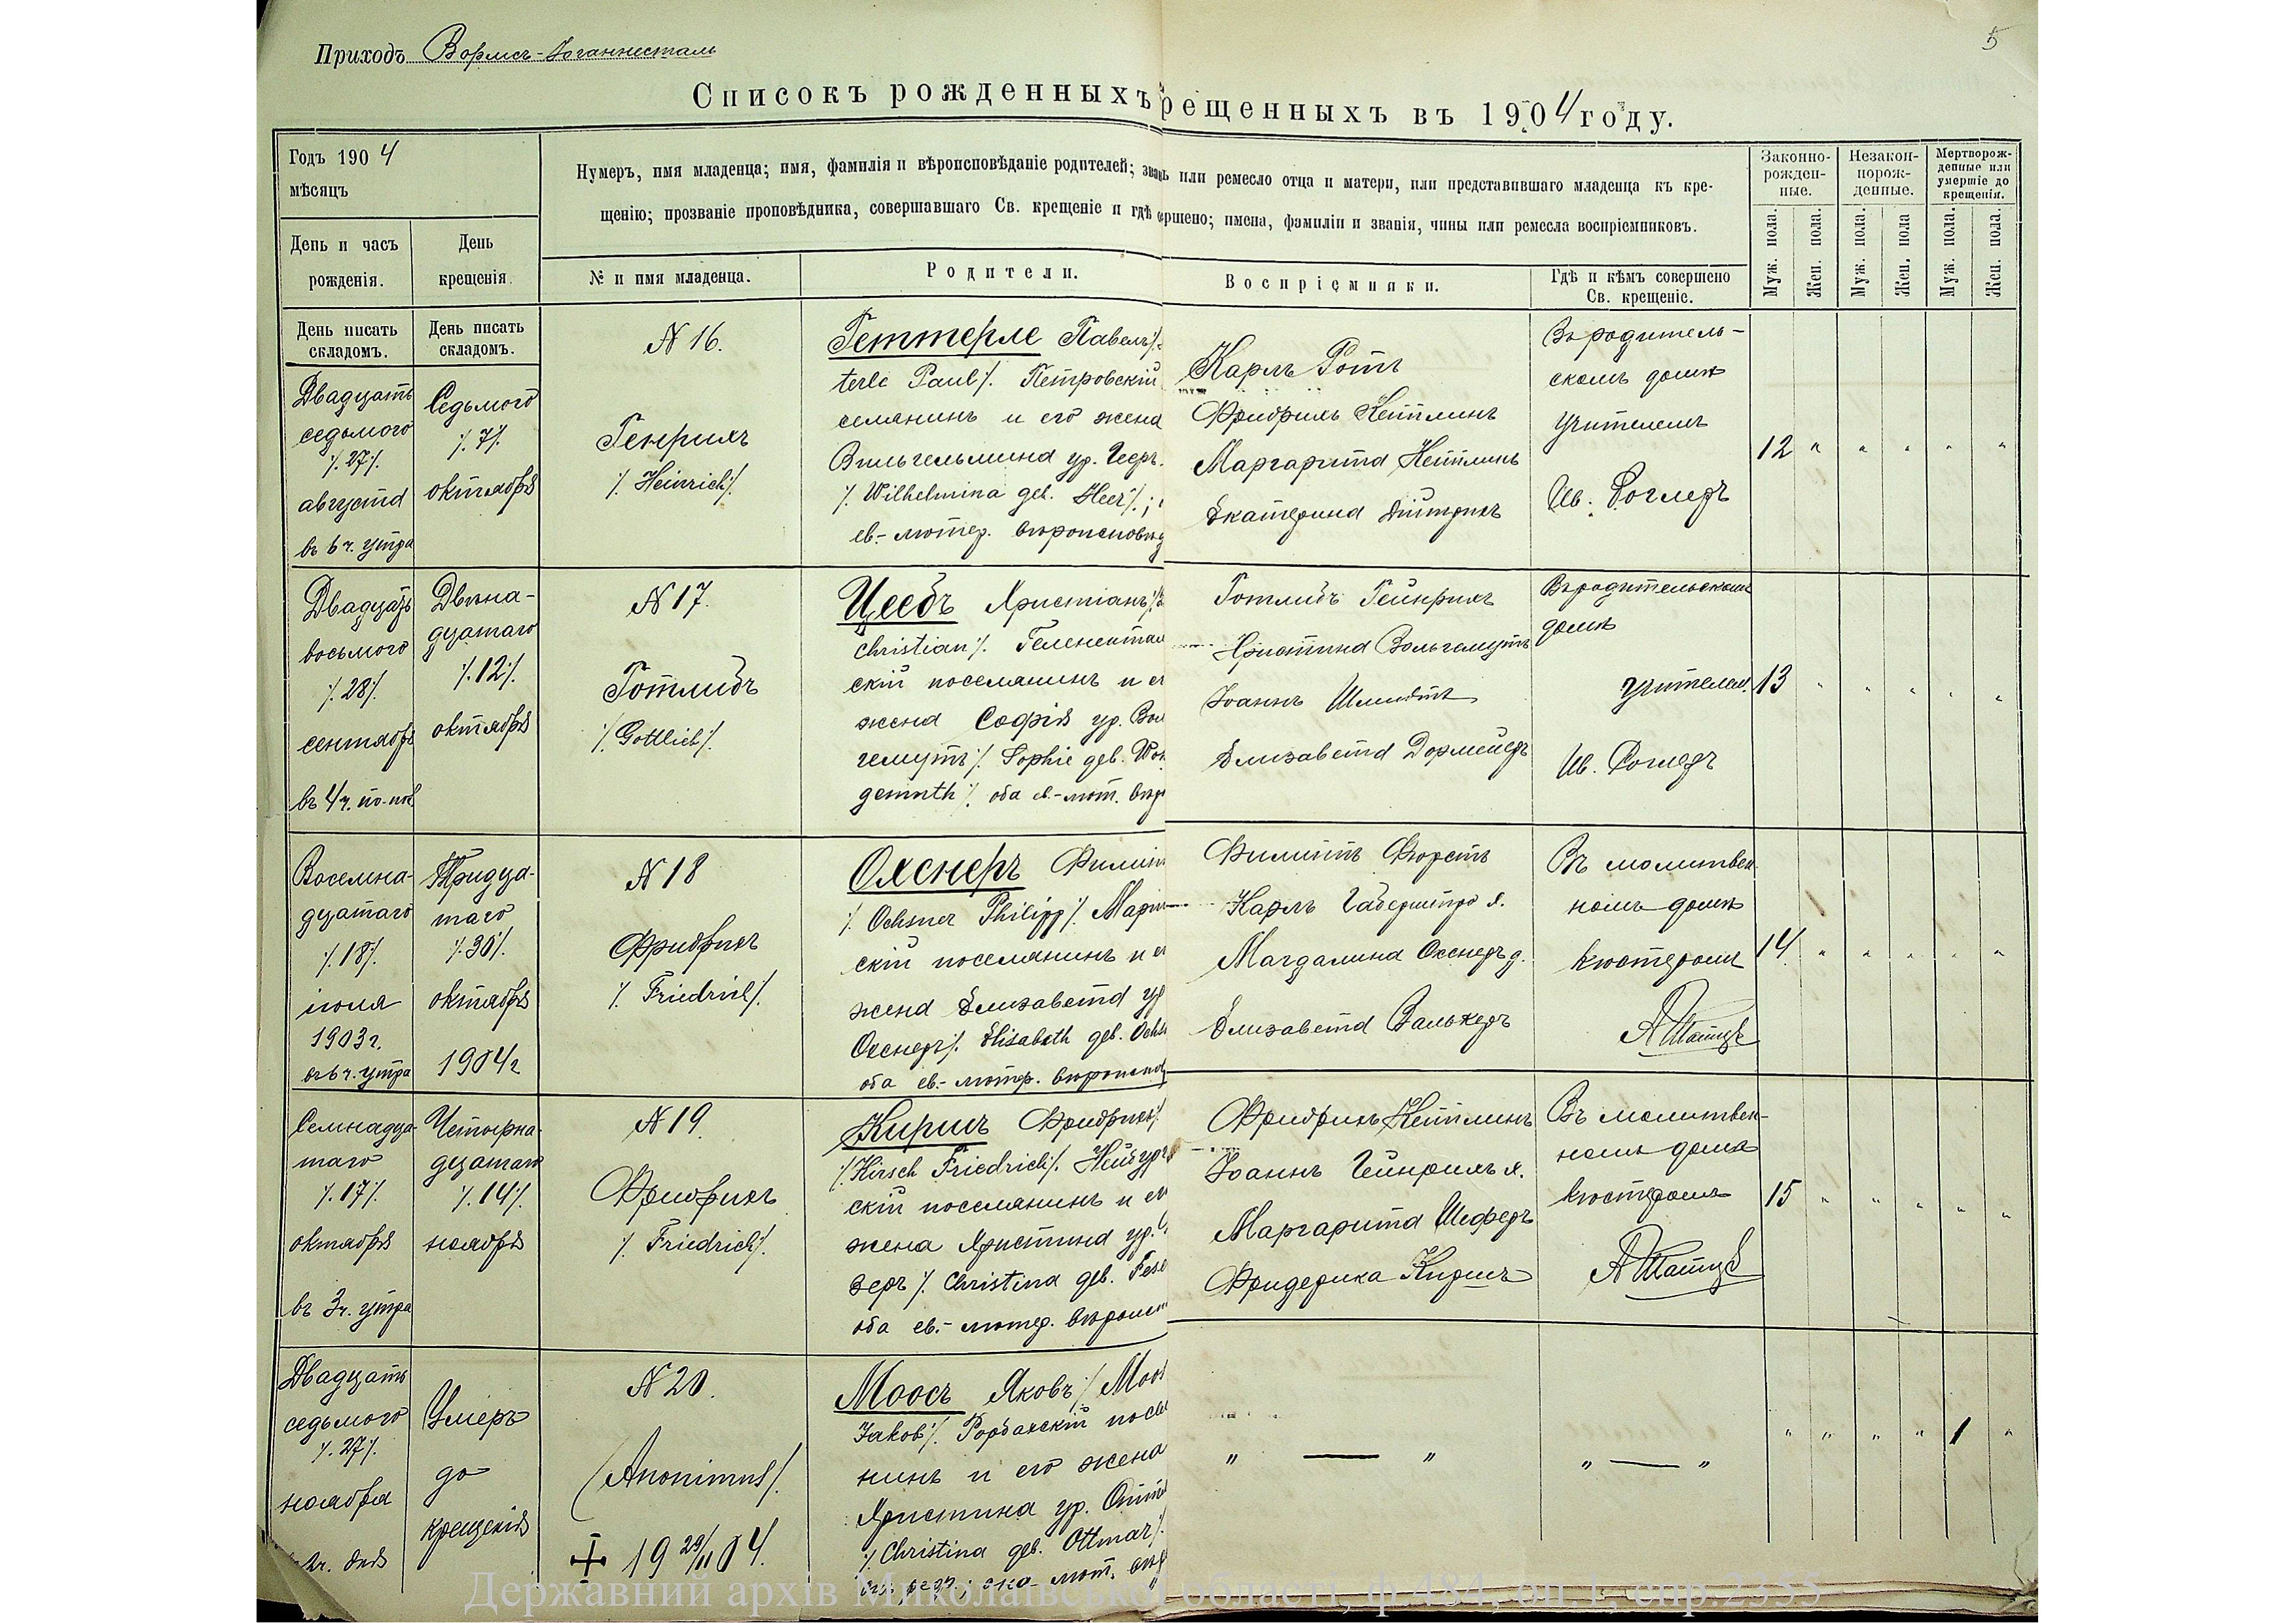 Приходъ Вормсъ-Іоганнесталь
5
Списокъ рожденныхъ рещенныхъ въ 1904 году.
Годъ 1904
мѣсяцъ
Нумеръ, имя младенца; имя, фамилія и вѣроисповѣданіе родителей; или ремесло отца и матери, или представившаго младенца къ кре-
щенію; прозваніе проповѣдника, совершавшаго Св. крещеніе и гдѣ ершено; имена, фамиліи и званія, чины или ремесла воспріемниковъ.
Законно-
рожден-
ные.
Незакон-
норож-
денные.
Мертворож-
денные или
умершіе до
крещенія.
День и часъ
рожденія.
День
крещенія.
№ и имя младенца.
Родители.
Воспріемники.
Гдѣ и кѣмъ совершено
Св. крещеніе.
Муж. пола.
Жен. пола.
Муж. пола.
Жен. пола
Муж. пола.
Жен. пола.
День писать
складомъ.
День писать
складомъ.
Двадцать
седьмого
/.27/.
августа
въ 6 ч. утра
Седьмого
/.7/.
октября
N 16.
Генрихъ
/. Heinrich/.
Геттерле Павелъ/.
terle Paul/. Петровскій
селянинъ и его жена
Вильгельмина ур. Гееръ.
/. Wilhelmina geb. Heer/.;
ев.-лютер. вѣроисповѣд
Карлъ Ротъ
Фридрихъ Кетлинъ
Маргарита Кетлинъ
Екатерина Дитрихъ
Въ родитель-
скомъ домѣ
учителемъ
Ив. Роглеръ
12 " " " " "
Двадцать
восьмого
/.28/.
сентября
въ 4 ч. по-пол
Двѣна-
дцатаго
/.12/.
октября
N 17.
Готлибъ
/. Gottlieb/.
Цеебъ Христіанъ/.
Christian/. Гелененталь
скій поселянинъ и ег
жена Софія ур. Вол
гемутъ/. Sophie geb. Wohl
gemuth/. оба ев.-лют. вѣр
Готлибъ Гейнрихъ
Христина Вольгемутъ
Іоаннъ Шмидтъ
Елизавета Дормейеръ
Въ родительскомъ
домѣ
учителемъ
Ив. Роглеръ
13 " " " " "
Восемна-
дцатаго
/.18/.
іюля
1903 г.
въ 6 ч. утра
Тридца-
таго
/.30/.
октября
1904 г
N 18
Фридрихъ
/. Friedrich/.
Охснеръ Филип
/. Ochsner Philipp/. Марі
скій поселянинъ и ег
жена Елизавета ур
Охснеръ/. Elisabeth geb. Ochs
оба ев.-лютер. вѣроиспов
Филиппъ Фюрстъ
Карлъ Габерштро х.
Магдалина Охснеръ д.
Елизавета Валькеръ
Въ молитвен-
номъ домѣ
кюстеромъ
14 " " " " "
Семнадца-
таго
/.17/.
октября
въ 3 ч. утра
Четырна-
дцатаго
/.14/.
ноября
N 19.
Фридрихъ
/. Friedrich/.
Киршъ Фридрихъ/.
/. Hirsch Friedrich/. Нейбург
скій поселянинъ и ег
жена Христина ур.
зеръ/. Christina geb. Fese
оба ев.-лютер. вѣроисп
Фридрихъ Кетлинъ
Іоаннъ Гейнрихъ х.
Маргарита Шеферъ
Фридерика Киршъ
Въ молитвен-
номъ домѣ
кюстеромъ
15 " " " " "
Двадцать
седьмого
/.27/.
ноября
ч. дня
Умеръ
до
крещенія
N 20.
/Anonimus/.
† 19 29/11 04.
Моосъ Яковъ/. Moos
Jakob/. Рорбахскій посел
нинъ и его жена
Христина ур. Отт
/. Christina geb. Ottmar/.
" — "
" — "
" " " " 1 "
Державний архів Миколаївської області, ф.484, оп.1, спр.2355